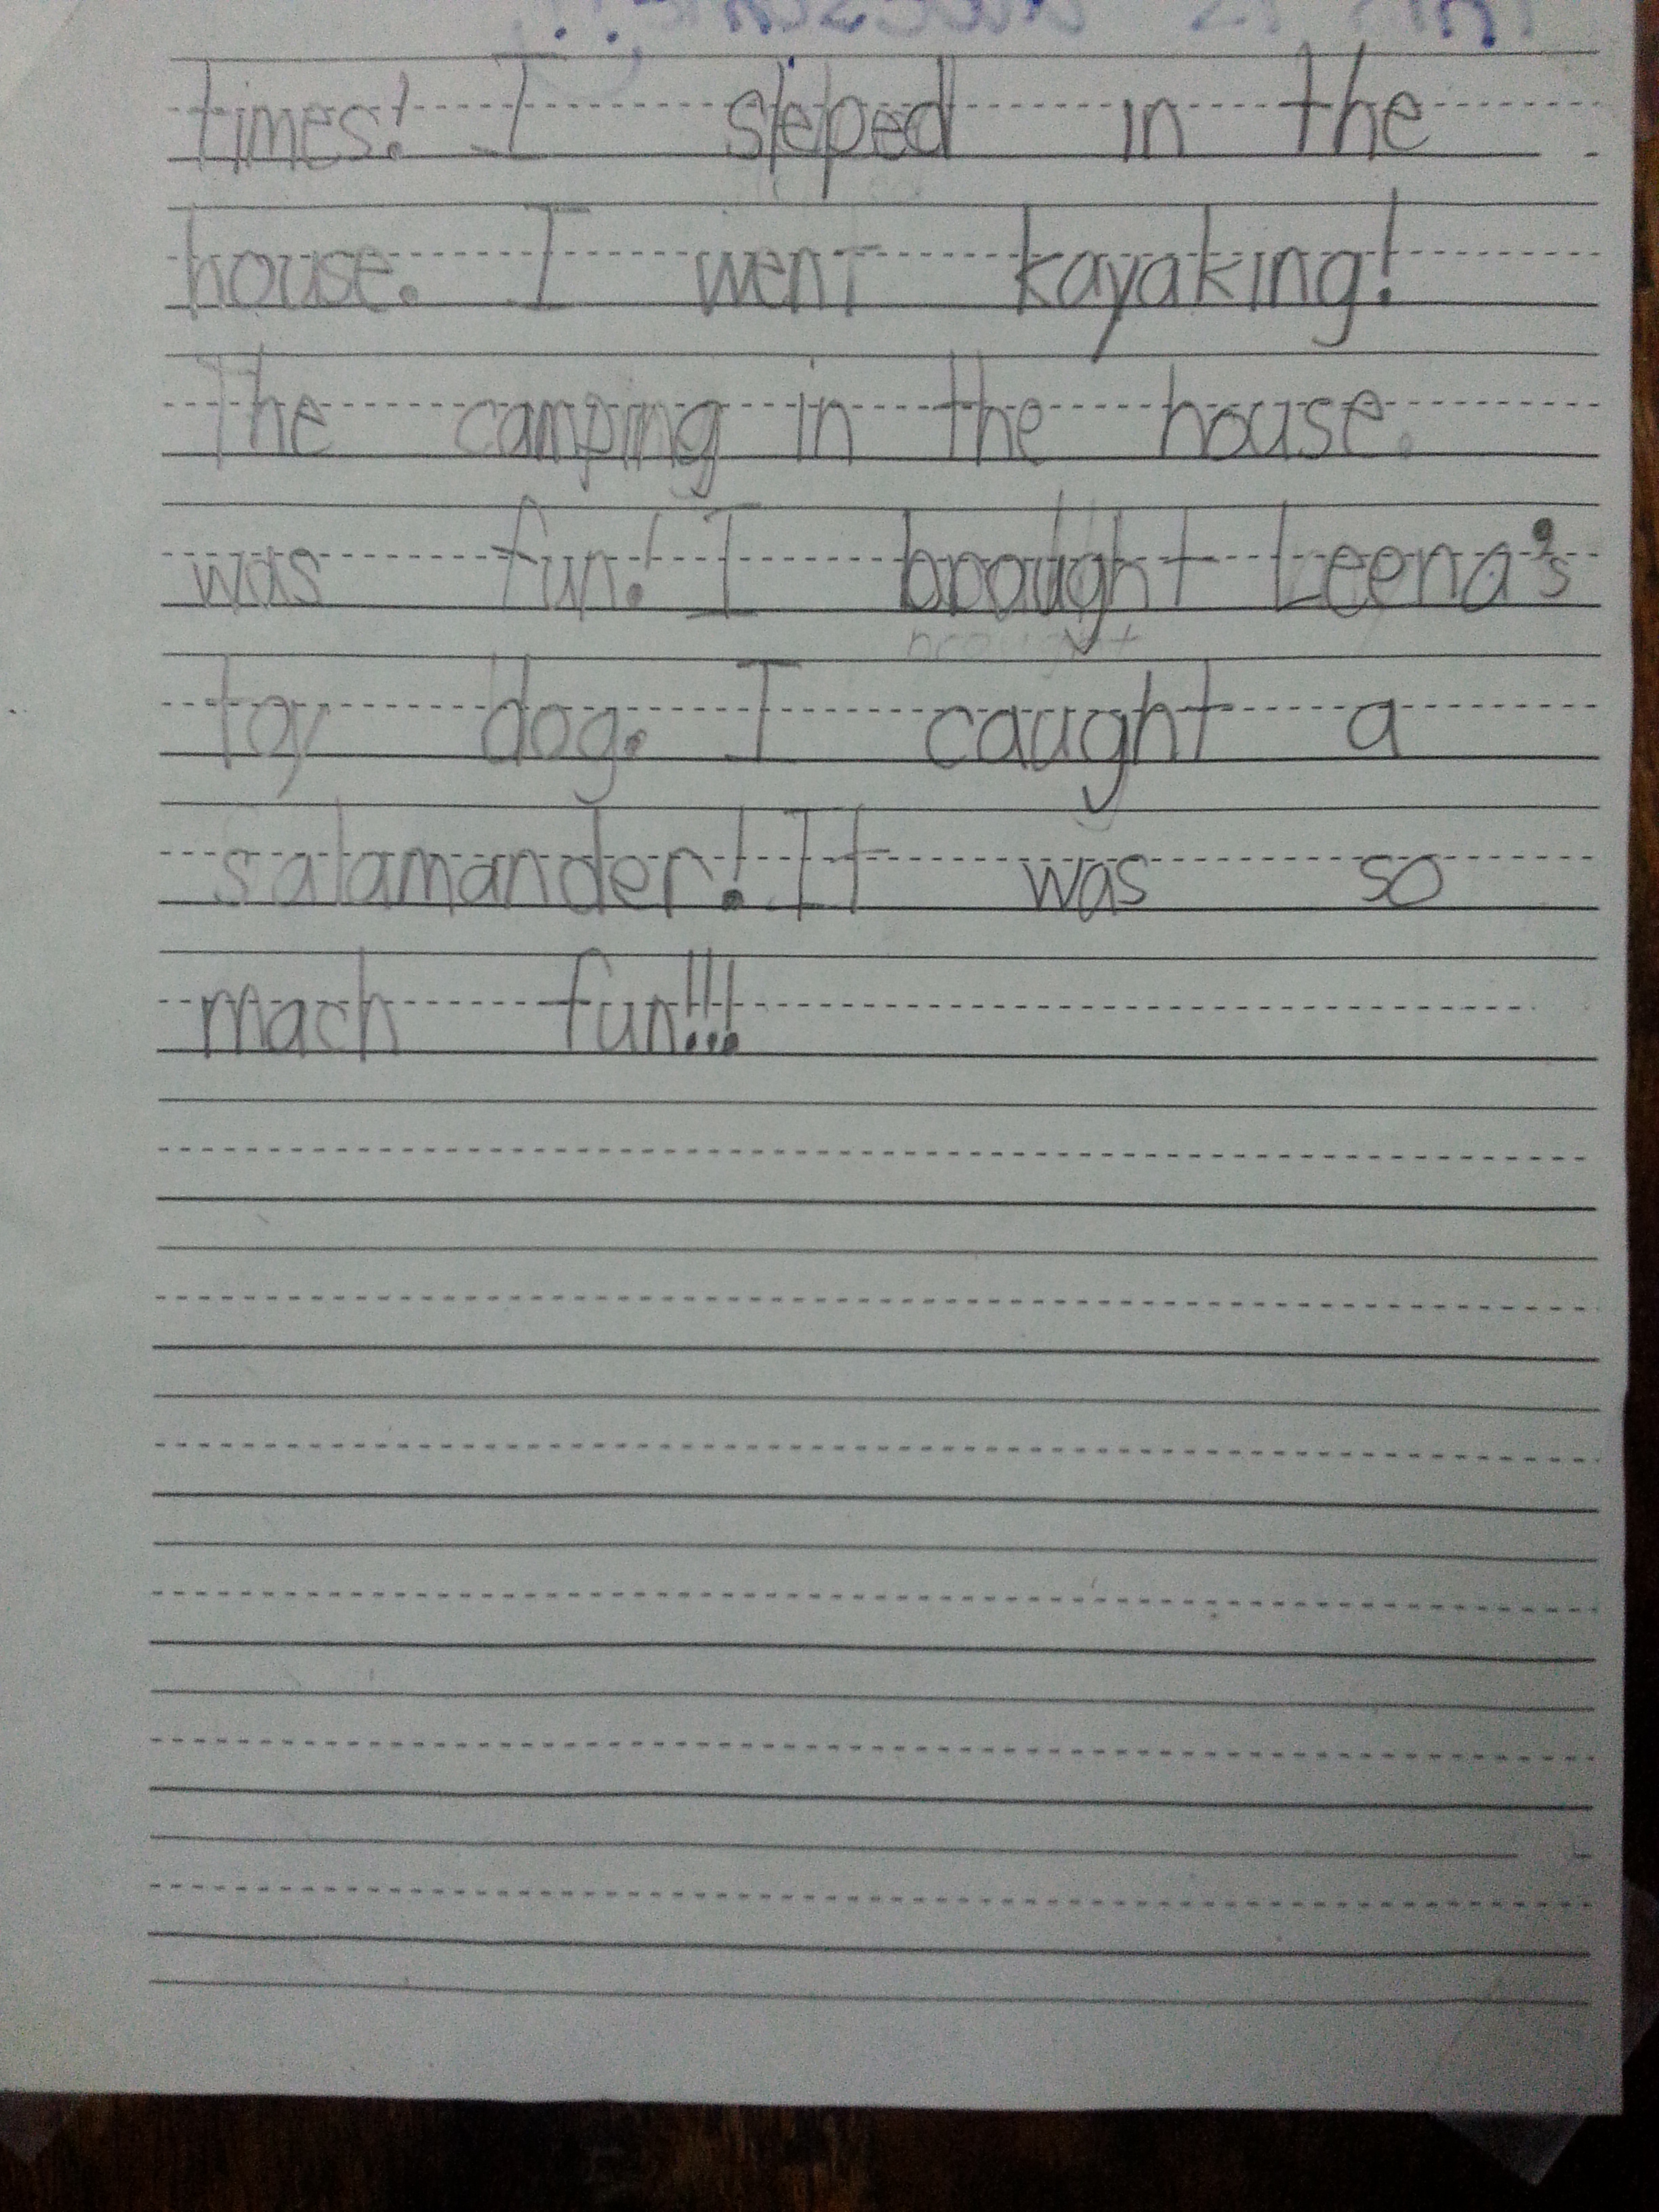 times! I sleped in the
house. I went kayaking!
The camping in the house.
was fun! I brought Leena's
toy dog. I caught a
salamander! It was so
mach fun!!!